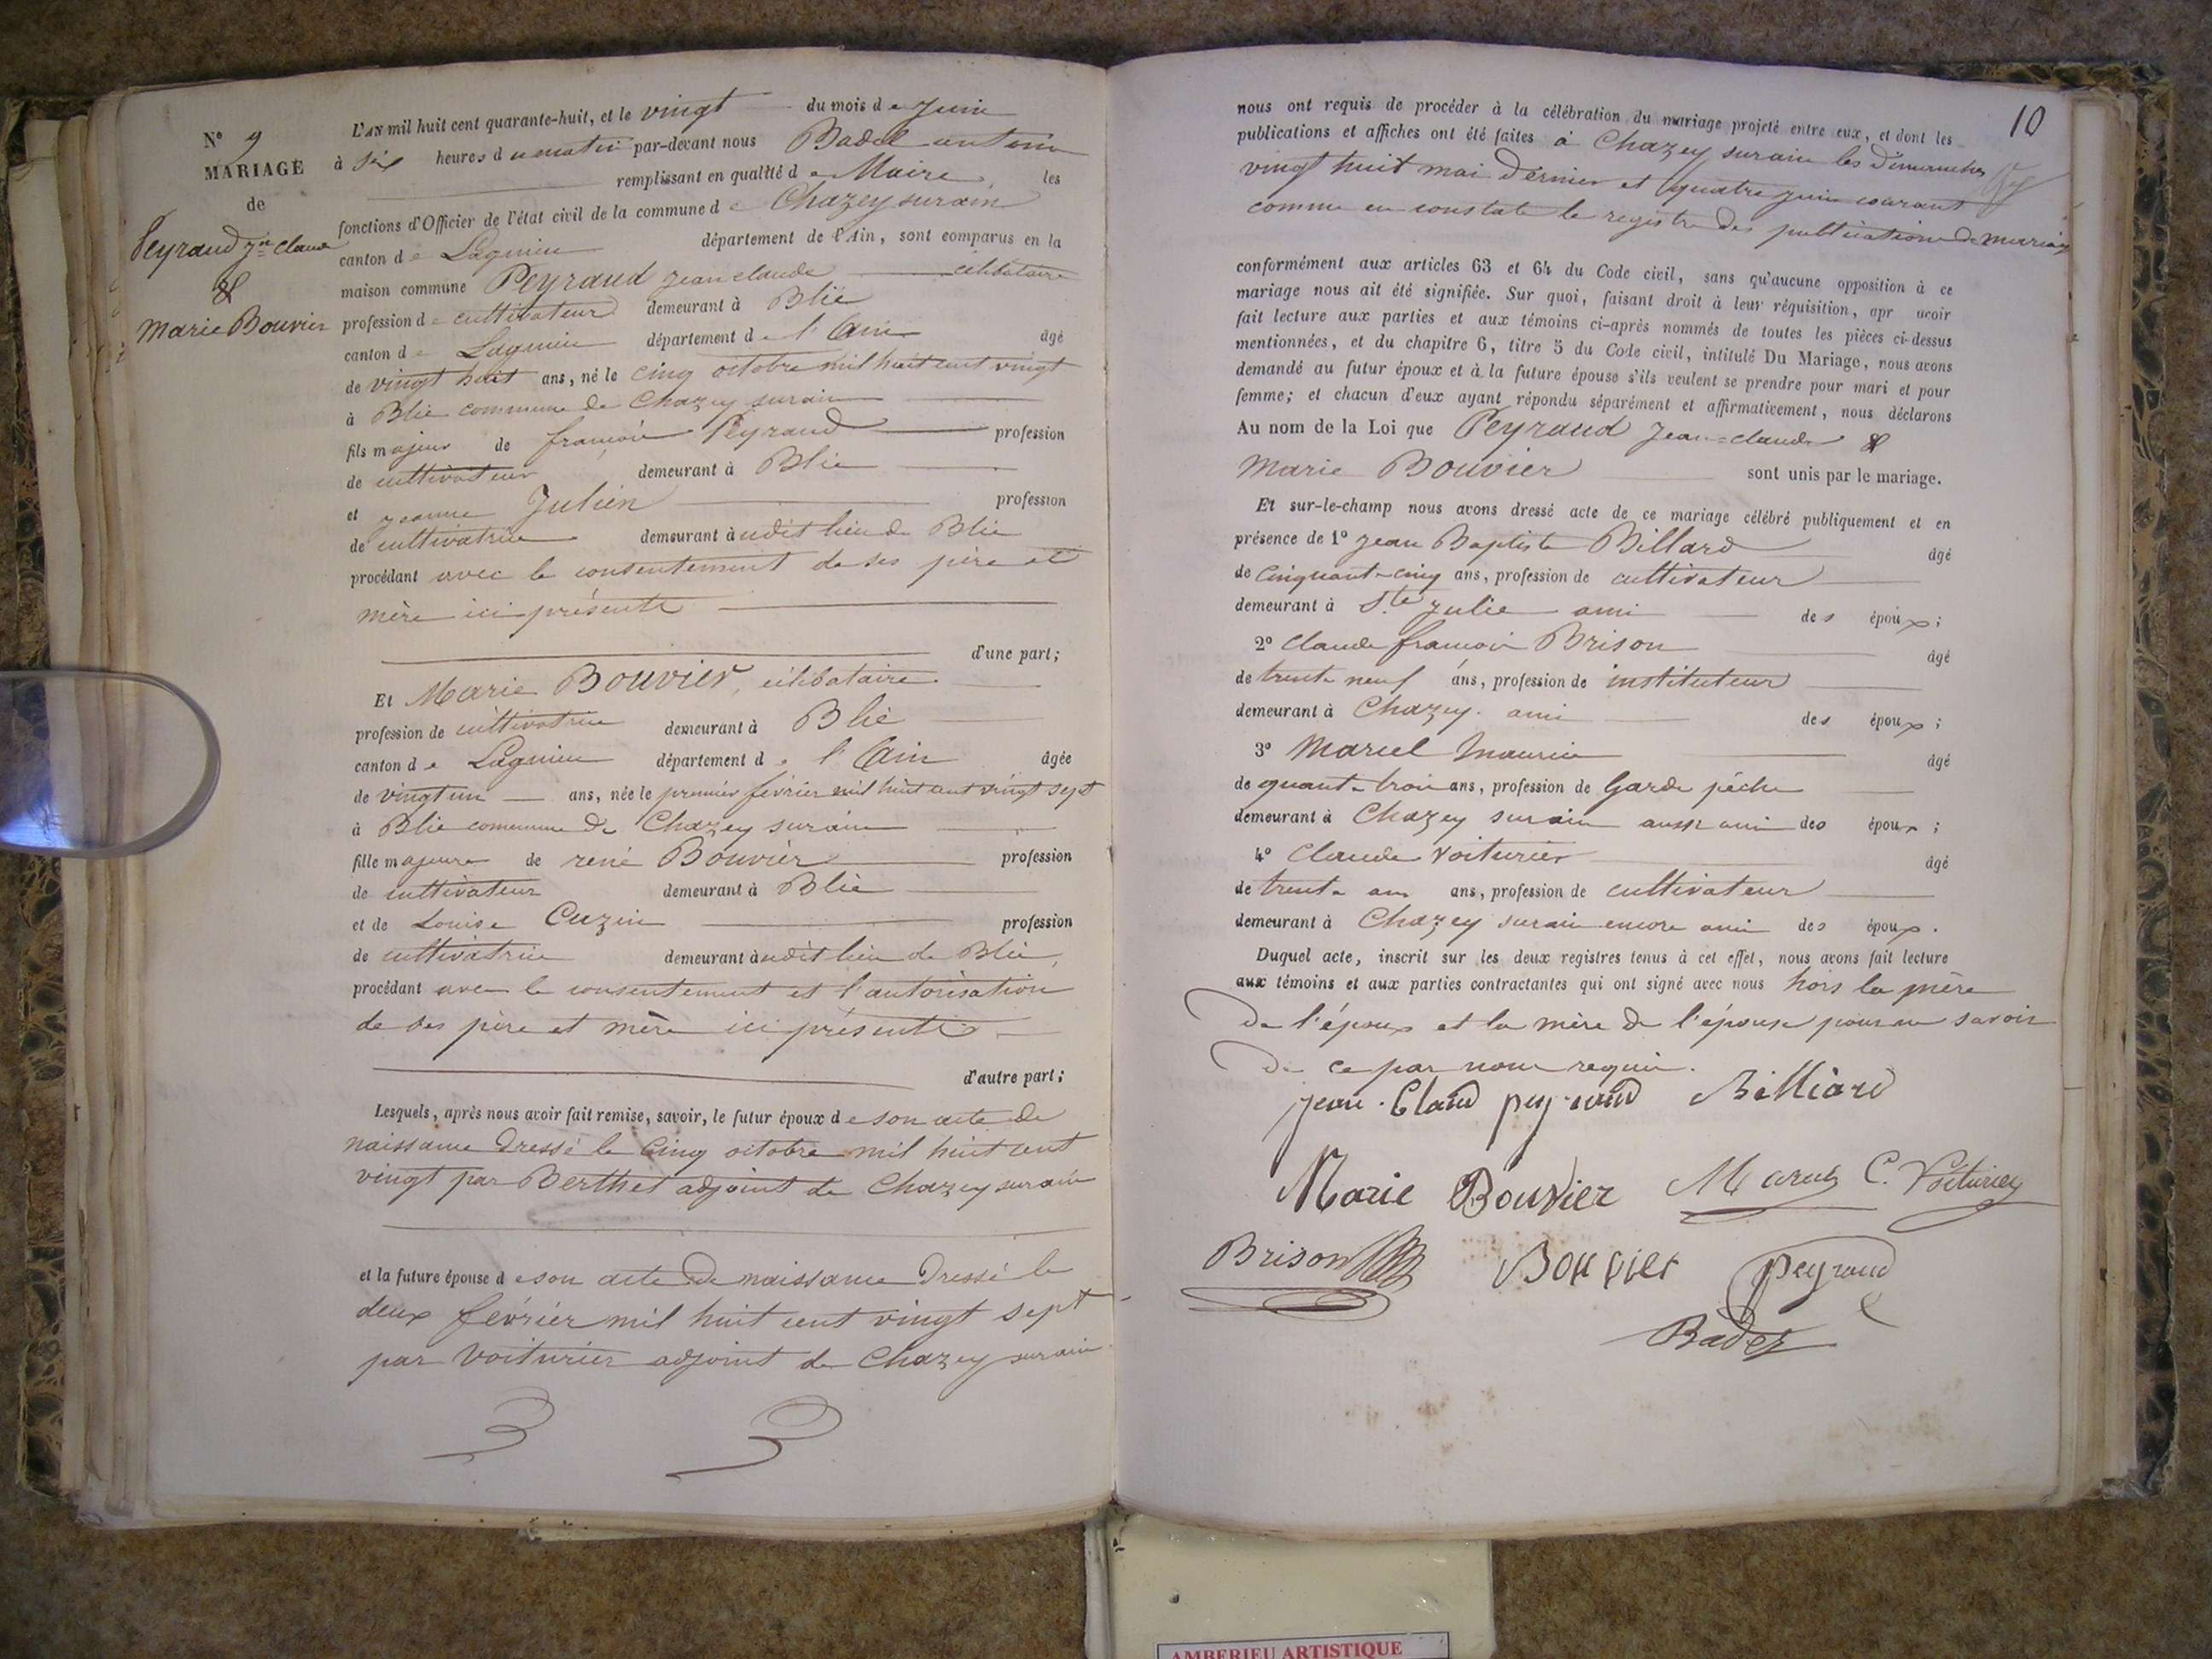 N° 9
MARIAGE
de
Peyraud Jn Claude
&
Marie Bouvier
L'AN mil huit cent quarante-huit, et le vingt du mois de Juin
à six heures du matin par-devant nous Badel antoine
remplissant en qualité de Maire les
fonctions d'Officier de l'état civil de la commune de Chazey surain
canton de Lagnieu département de l'Ain, sont comparus en la
maison commune Peyraud jean claude célibataire
profession de cultivateur demeurant à Blie
canton de Lagnieu département de l'Ain âgé
de vingt huit ans, né le cinq octobre mil huit cent vingt
à Blie commune de Chazey surain
fils majeur de françois Peyraud profession
de cultivateur demeurant à Blie
et jeanne Julien profession
de cultivatrice demeurant à udit lieu de Blie
procédant avec le consentement de ses père et
mère ici présents
d'une part;
Et Marie Bouvier, célibataire
profession de cultivatrice demeurant à Blie
canton de Lagnieu département de l'Ain âgée
de vingt un ans, née le premier février mil huit cent vingt sept
à Blie commune de Chazey surain
fille majeure de rené Bouvier profession
de cultivateur demeurant à Blie
et de Louise Cuzin profession
de cultivatrice demeurant à udit lieu de Blie,
procédant avec le consentement et l'autorisation
de ses père et mère ici présents
d'autre part;
Lesquels, après nous avoir fait remise, savoir, le futur époux de son acte de
naissance dressé le cinq octobre mil huit cent
vingt par Berthet adjoint de Chazey surain
et la future épouse de son acte de naissance dressé le
deux février mil huit cent vingt sept
par Voiturier adjoint de Chazey surain
10
nous ont requis de procéder à la célébration du mariage projeté entre eux, et dont les
publications et affiches ont été faites à Chazey surain les dimanches
vingt huit mai dernier et quatre juin courant
comme en constate le registre des publications de mariage
conformément aux articles 63 et 64 du Code civil, sans qu'aucune opposition à ce
mariage nous ait été signifiée. Sur quoi, faisant droit à leur réquisition, apr avoir
fait lecture aux parties et aux témoins ci-après nommés de toutes les pièces ci-dessus
mentionnées, et du chapitre 6, titre 5 du Code civil, intitulé Du Mariage, nous avons
demandé au futur époux et à la future épouse s'ils veulent se prendre pour mari et pour
femme; et chacun d'eux ayant répondu séparément et affirmativement, nous déclarons
Au nom de la Loi que Peyraud Jean-claude &
Marie Bouvier sont unis par le mariage.
Et sur-le-champ nous avons dressé acte de ce mariage célébré publiquement et en
présence de 1° jean Baptiste Billard âgé
de cinquante-cinq ans, profession de cultivateur
demeurant à Ste julie ami des époux;
2° claude françois Brison âgé
de trente neuf ans, profession de instituteur
demeurant à Chazey. ami des époux;
3° Marcel Maurice âgé
de quante trois ans, profession de Garde pêche
demeurant à Chazey surain aussi ami des époux;
4° Claude Voiturier âgé
de trente ans ans, profession de cultivateur
demeurant à Chazey surain encore ami des époux.
Duquel acte, inscrit sur les deux registres tenus à cet effet, nous avons fait lecture
aux témoins et aux parties contractantes qui ont signé avec nous hors la mère
de l'époux et la mère de l'épouse pour ne savoir
de ce par nous requis.
jean. Claud peyraud Billiard
Marie Bouvier Marcel C. Voiturier
Brison Bouvier Peyraud
Badel
AMBERIEU ARTISTIQUE